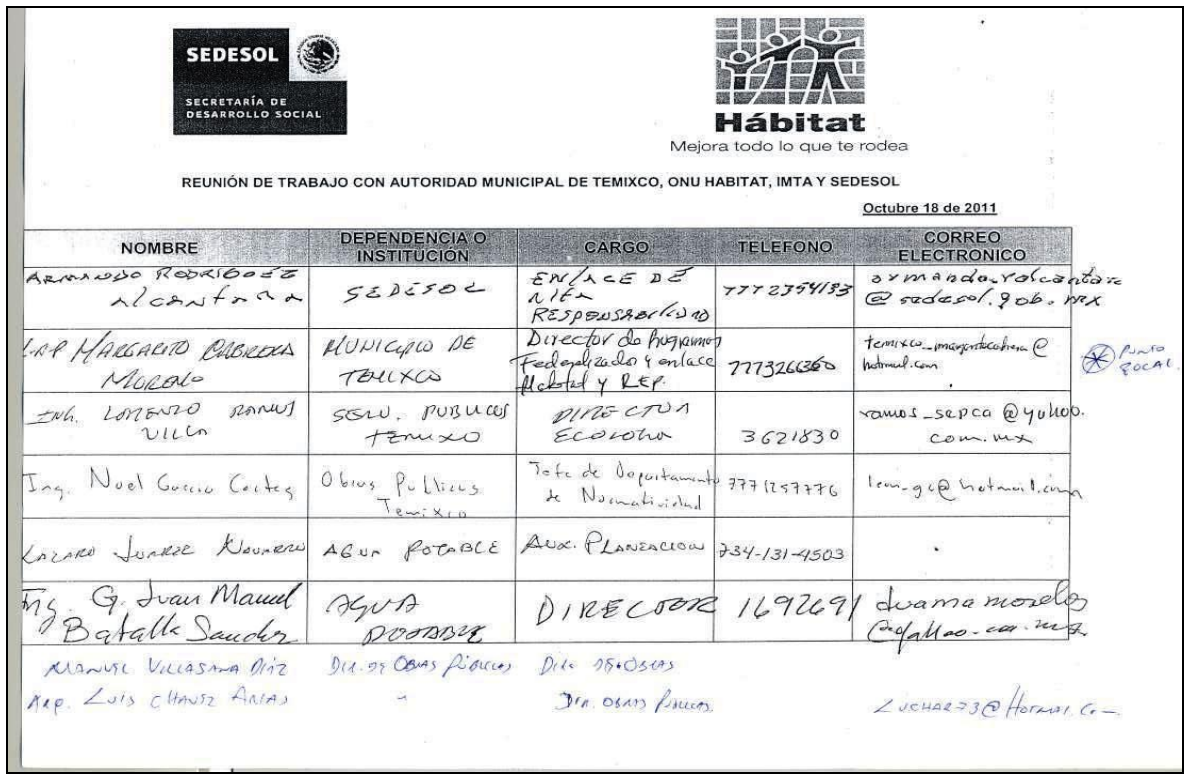 SEDESOL
SECRETARÍA DE
DESARROLLO SOCIAL
Hábitat
Mejora todo lo que te rodea
REUNIÓN DE TRABAJO CON AUTORIDAD MUNICIPAL DE TEMIXCO, ONU HABITAT, IMTA Y SEDESOL
Octubre 18 de 2011
NOMBRE DEPENDENCIA O INSTITUCIÓN CARGO TELEFONO CORREO ELECTRONICO
ARMANDO RODRIGUEZ
Alcantara
SEDESOL
ENLACE DE
RESPONSABILIDAD
armando.rolcantara
@sedesol.gob.mx
MARGARITO CABRERA
MORENO
MUNICIPIO DE
TEMIXCO
Director de Programas
Federalizados y enlace
Habitat y REP.
hotmail.com
PUNTO
FOCAL
ING. LORENZO RAMOS
VILLA
SERV. PUBLICOS
TEMIXO
DIRECTOR
ECOLOGIA
3621830
ramos_sepca@yahoo.
com.mx
Ing. Noel Garcia Cortes
Obras Publicas
Temixco
Jefe de Departamento
de Normatividad
7771257776
LAZARO JUAREZ NAVARRO
AGUA POTABLE
AUX. PLANEACION
734-131-4503
Ing. G. Juan Manuel
Batalla Sanchez
AGUA
POTABLE
DIRECTOR
1692691
MANUEL VILLASANA DIAZ
DIR. DE OBAS PÚBLICAS
DIR. DE OBAS
ARQ. LUIS CHAVEZ ARIAS
"
DIR. OBAS PUBLICAS
LUCHAR73@HOTMAIL.COM